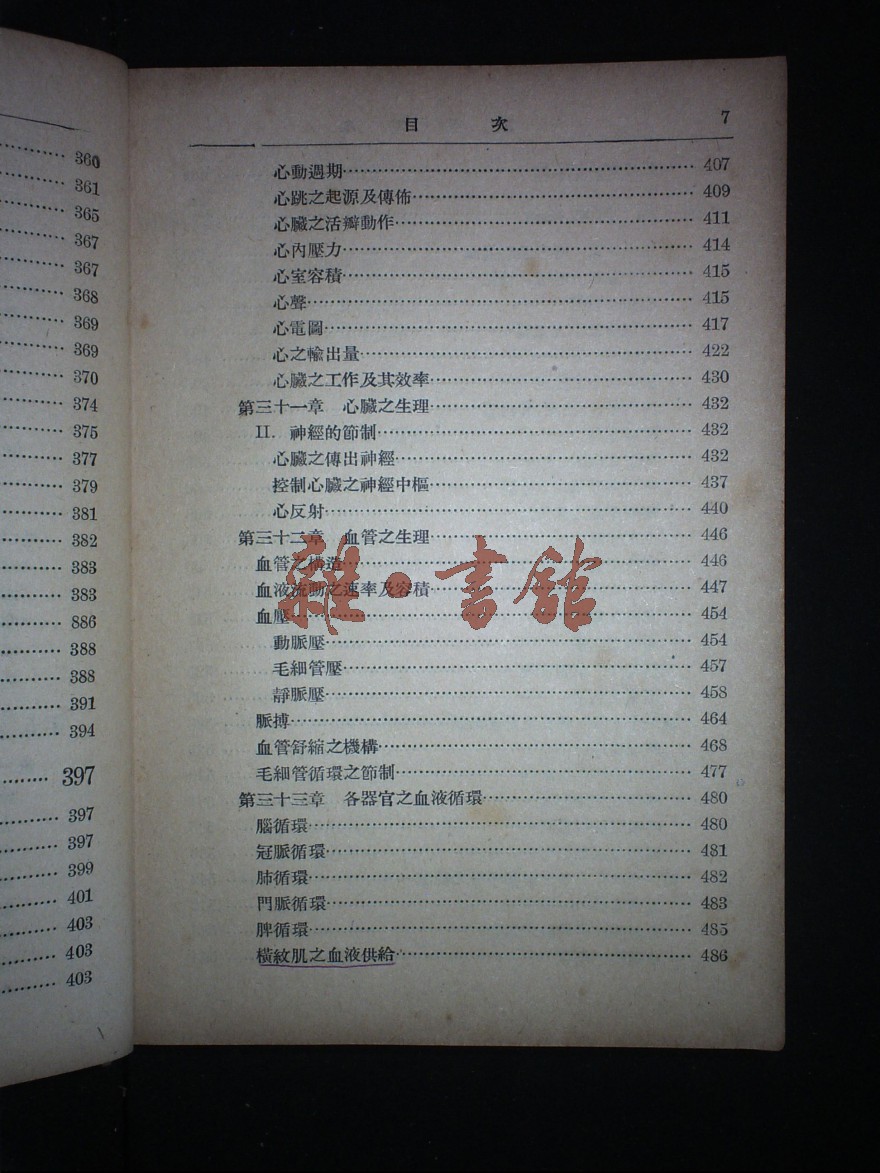 360
361
365
367
367
368
369
369
370
374
375
377
379
381
382
383
383
886
388
388
391
394
397
397
397
399
401
403
403
403
目 次 7
心動週期 407
心跳之起源及傳佈 409
心臟之活瓣動作 411
心內壓力 414
心室容積 415
心聲 415
心電圖 417
心之輸出量 422
心臟之工作及其效率 430
第三十一章 心臟之生理 432
II. 神經的節制 432
心臟之傳出神經 432
控制心臟之神經中樞 437
心反射 440
第三十二章 血管之生理 446
血管之構造 446
血液流動之速率及容積 447
血壓 454
動脈壓 454
毛細管壓 457
靜脈壓 458
脈搏 464
血管舒縮之機構 468
毛細管循環之節制 477
第三十三章 各器官之血液循環 480
腦循環 480
冠脈循環 481
肺循環 482
門脈循環 483
脾循環 485
橫紋肌之血液供給 486
雜·書館